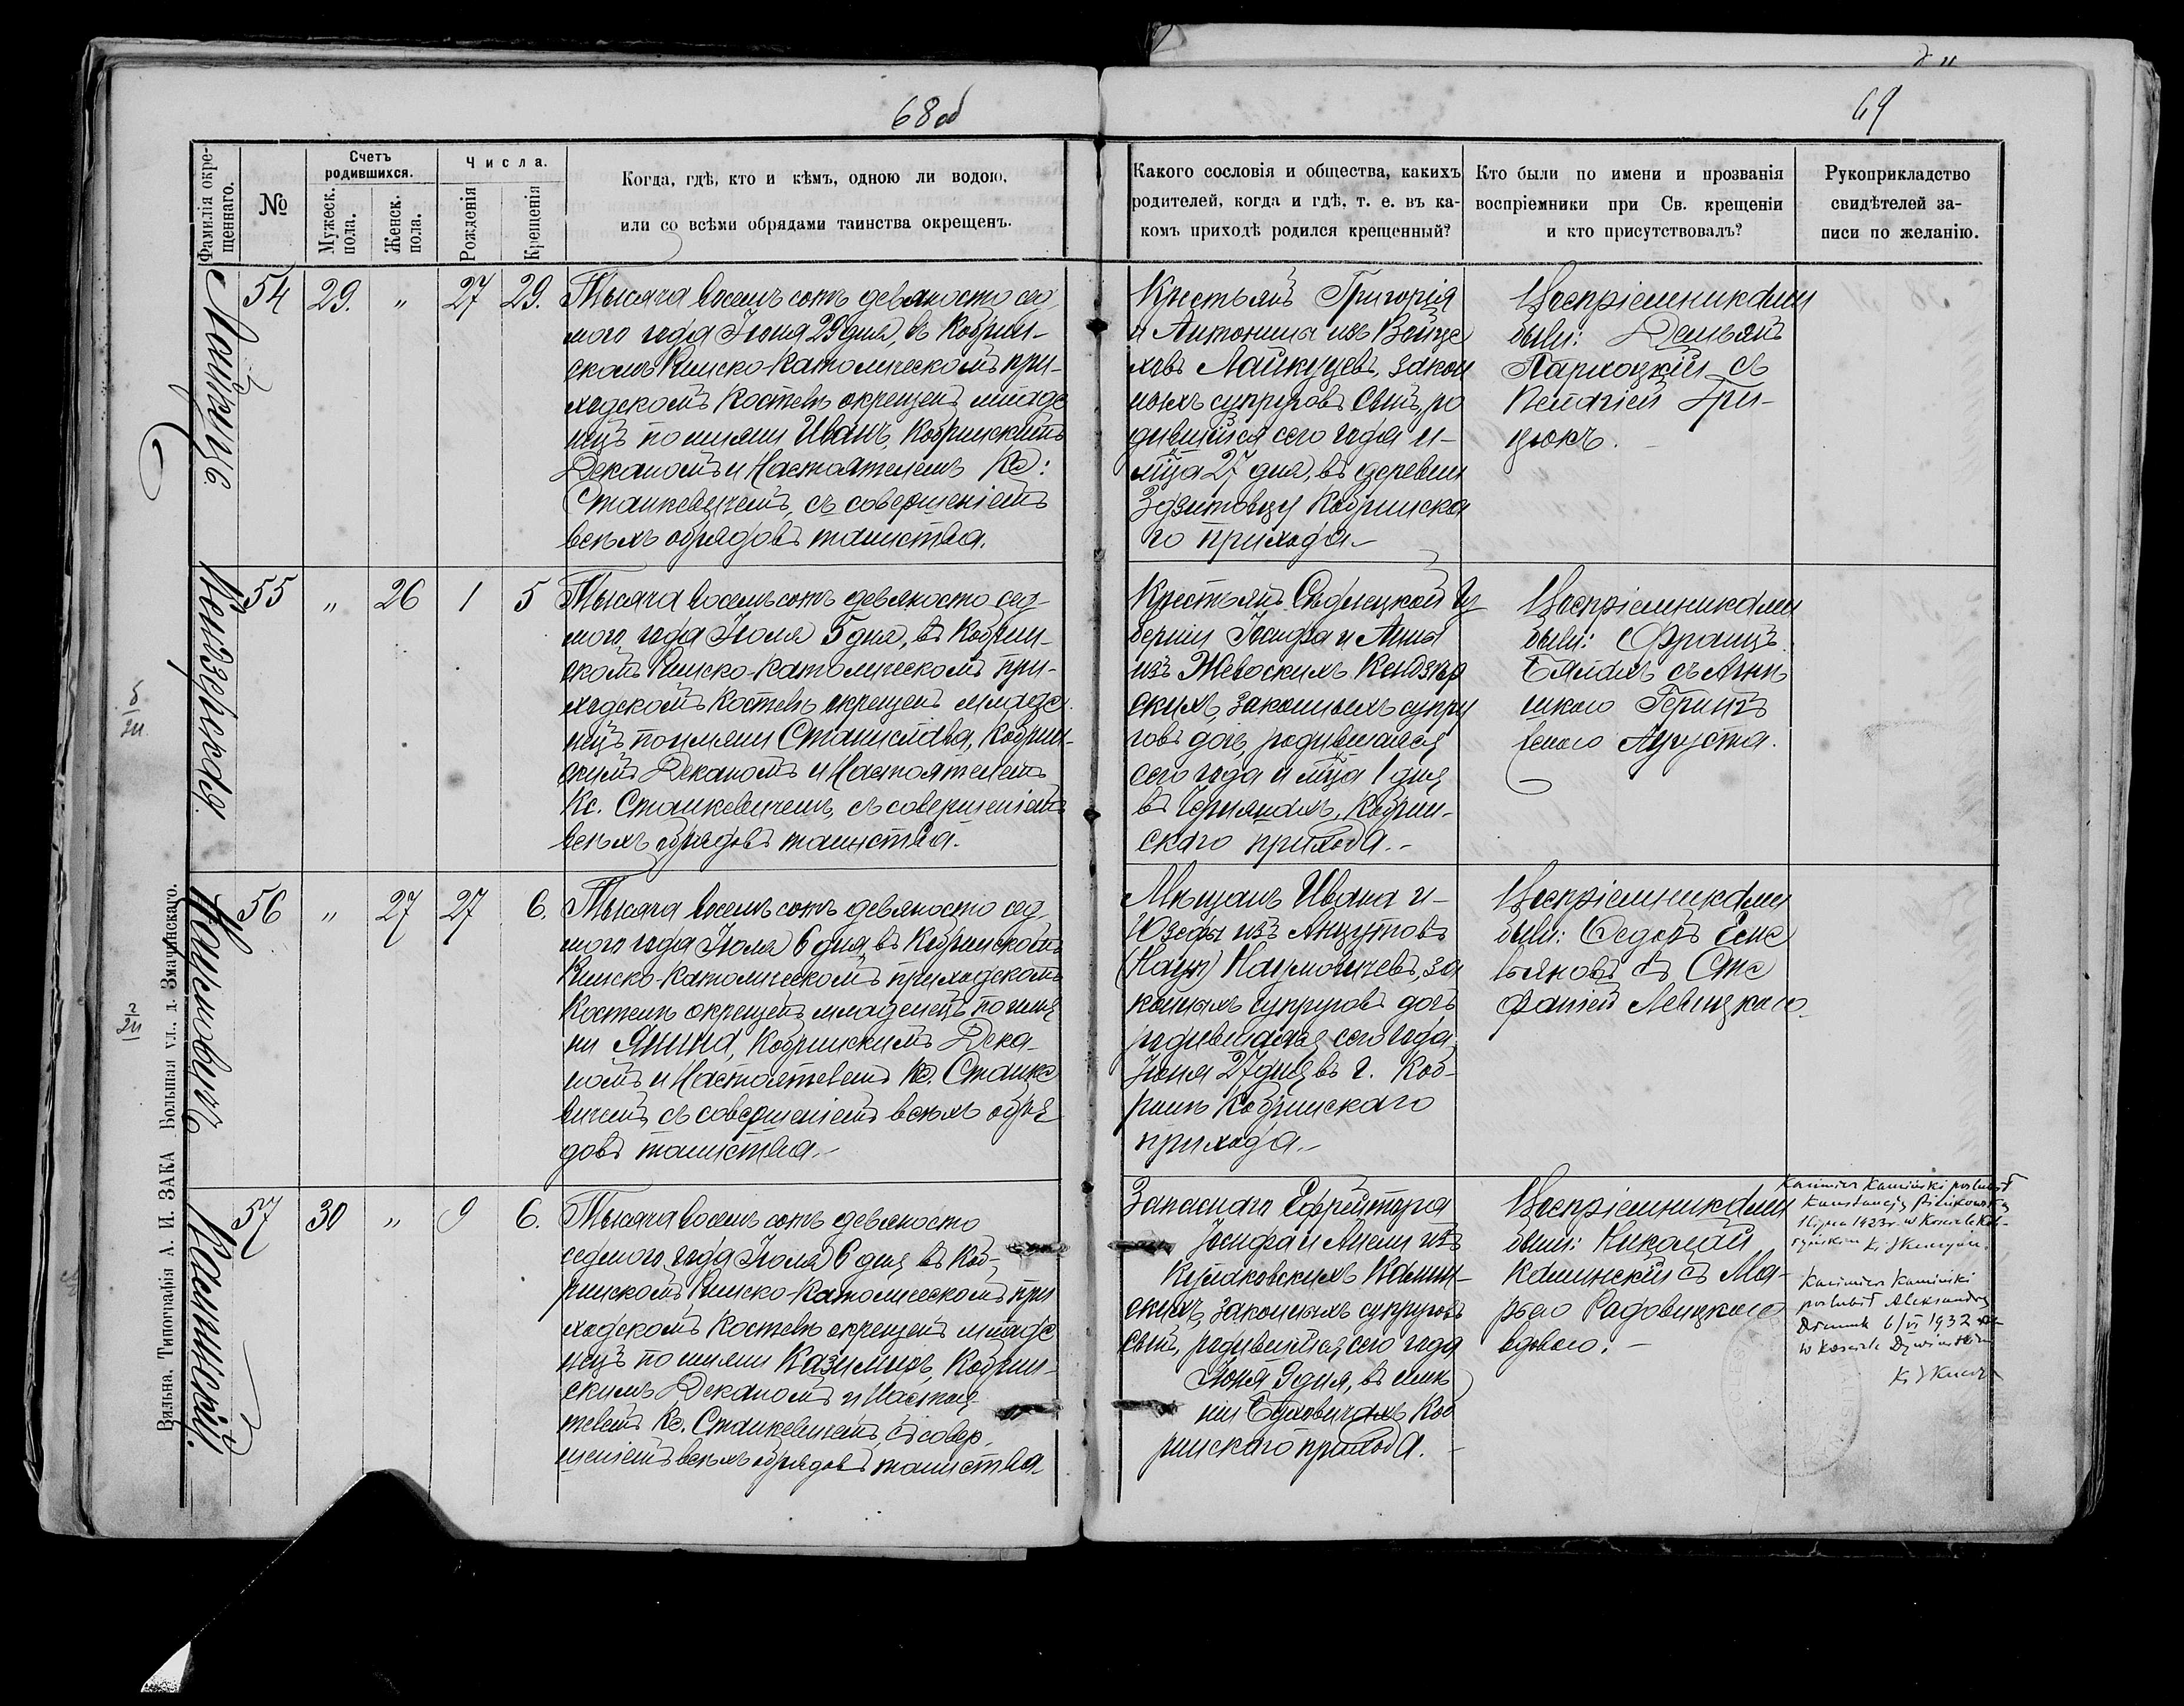 68об
69
Фамилія окре-
щеннаго.
№
Счетъ
родившихся.
Мужеск.
пола.
Женск.
пола.
Числа.
Рожденія
Крещенія
Когда, гдѣ, кто и кѣмъ, одною ли водою,
или со всѣми обрядами таинства окрещенъ.
Какого сословія и общества, какихъ
родителей, когда и гдѣ, т. е. въ ка-
комъ приходѣ родился крещенный?
Кто были по имени и прозванія
воспріемники при Св. крещеніи
и кто присутствовалъ?
Рукоприкладство
свидѣтелей за-
писи по желанію.
54 29. „ 27 29.
Тысяча восемьсотъ девяносто сед
мого года Іюня 29 дня, въ Кобрин-
скомъ Римско-Католическомъ при-
ходскомъ Костелѣ окрещенъ младе
нецъ по имени Иванъ, Кобринскимъ
Деканомъ и Настоятелемъ Кс:
Станкевичемъ, съ совершеніемъ
всѣхъ обрядовъ таинства.
Крестьянъ Григорія
и Антонины изъ Войце
ховъ Лайкуцевъ, закон
ныхъ супруговъ сынъ, ро
дившійся сего года и
м̃ца 27 дня, въ деревни
Здзитовцы Кобринска
го прихода.-
Воспріемниками
были: Демьянъ
съ
цюкъ.
55 „ 26 1 5
Кендзерская.
Тысяча восемьсотъ девяносто сед-
мого года Іюля 5 дня, въ Кобрин-
скомъ Римско-Католическомъ при-
ходскомъ Костелѣ окрещенъ младе
нецъ по имени Станислава, Кобрин-
скимъ Деканомъ и Настоятелемъ
Кс. Станкевичемъ, съ совершеніемъ
всѣхъ обрядовъ таинства.
Крестьянъ Сѣдлецкой Гу
берніи Іосифа и Анны
изъ Кендзер
скихъ, законныхъ супру
говъ дочь, родившаяся
сего года и м̃ца 1 дня
въ Кобрин-
скаго прихода.-
Воспріемниками
были: Францъ
съ Анн
Августа.
56 „ 27 27 6.
Наумовичъ
Тысяча восемьсотъ девяносто сед
мого года Іюля 6 дня, въ Кобринскомъ
Римско-Католическомъ приходскомъ
Костелѣ окрещенъ младенецъ по име
ни Янина, Кобринскимъ Дека-
номъ и Настоятелемъ Кс. Станке
вичемъ, съ совершеніемъ всѣхъ обря
довъ таинства.-
Мѣщанъ Ивана и-
Юзефы изъ Анцутовъ
(Наум) Наумовичевъ, за
конныхъ супруговъ дочь
родившаяся сего года
Іюня 27 дня, въ г. Коб-
ринѣ Кобринскаго
прихода.-
Воспріемниками
были: Федоръ Еме
льяновъ съ Сте
фаніей Левицкаго
57 30 „ 9 6.
Каминскій.
Тысяча восемьсотъ девяносто
седмого года Іюля 6 дня въ Коб-
ринскомъ Римско-Католическомъ при
ходскомъ Костелѣ окрещенъ младе
нецъ по имени Казимиръ, Кобрин-
скимъ Деканомъ и Настоя
телемъ Кс. Станкевичемъ, съ совер-
шеніемъ всѣхъ обрядовъ таинства
Запаснаго Ефрейтора
Іосифа и изъ
Камин-
скихъ, законныхъ супруговъ
сынъ, родившійся сего года
Іюня 9 дня, въ имѣ
ніи Буховичахъ Коб
ринскаго прихода.-
Воспріемниками
были: Николай
Каминскій съ Ма-
рьею Радовицкаго
вдовою.-
Kazimierz Kamiński poślubił
Konstancję
1 lipca 1923 r. w Kościele Kob-
ryńskim Ks.
Kazimierz Kamiński
poślubił Aleksandrę
6/VI 1932
w kościele
Ks.
Вильна. Типографія А. И. ЗАКА Большая ул., д. Змачинскаго.